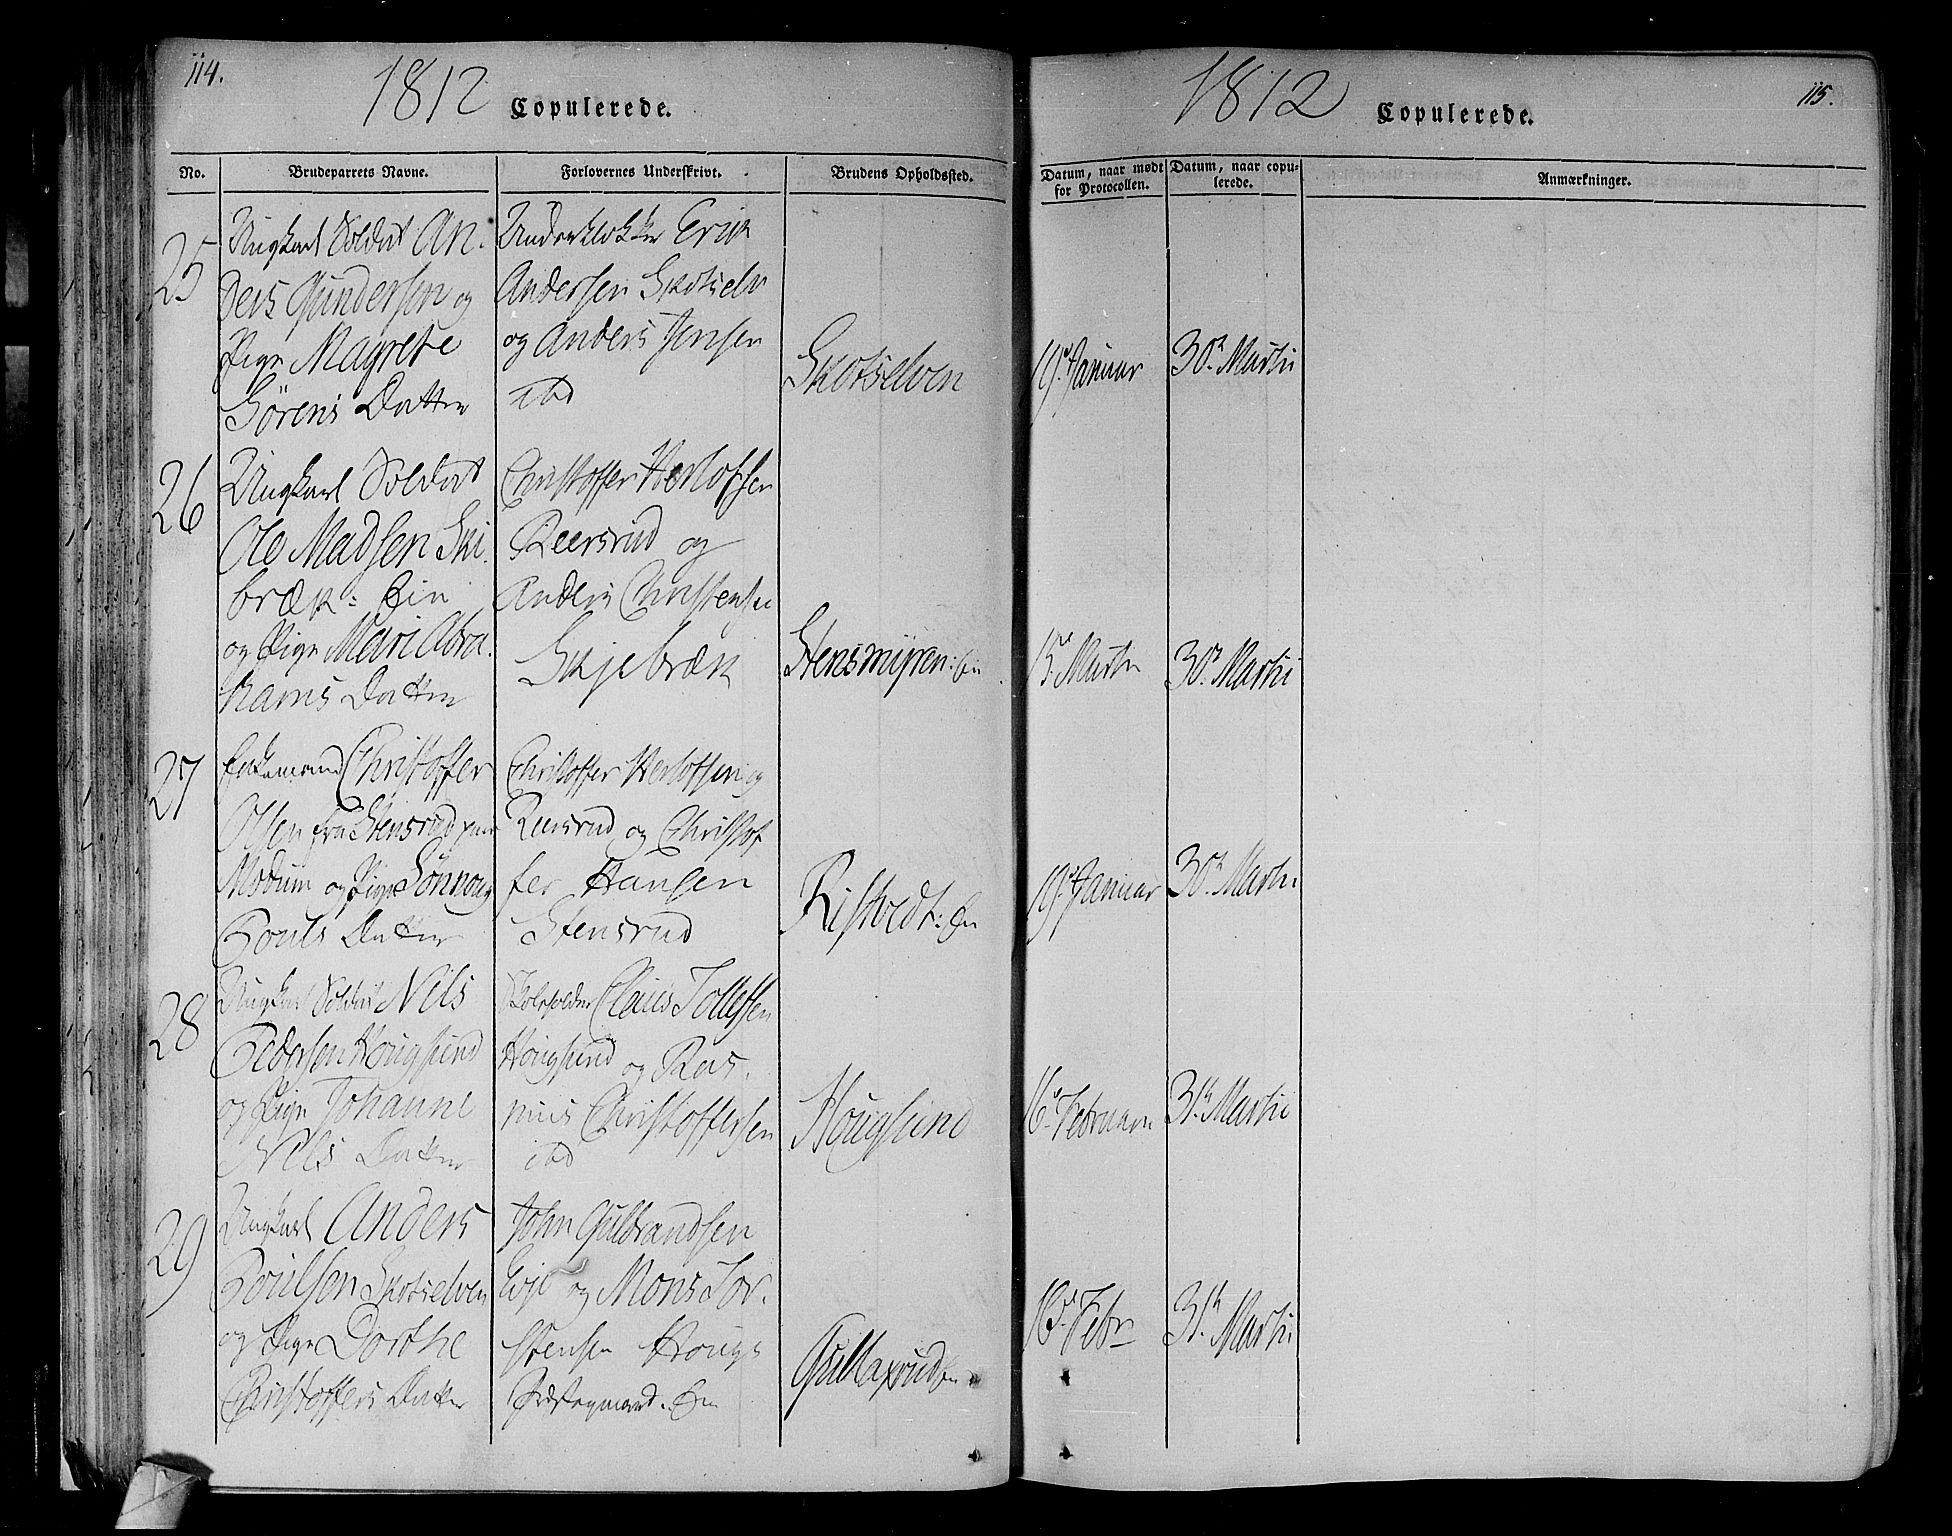 114.
1812
Copulerede.
No.
Brudeparrets Navne.
Forlovernes Underskrivt.
Brudens Opholdssted.
25
Ungkarl Soldat An-
ders Gundersen og
Pige Magrete
Sørens Datter
Underklokker Erik
Andersen Skotselv
og Anders Jensen
ibd
Skotselven
26
Ungkarl Soldat
Ole Madsen Ski-
bræk: Ein
og Pige Mari Abra-
hams Datter
Christoffer Herlofsen
Reersrud og
Anders Christensen
Skjebræk
Stensmyren: Ein
27
Enkemand Christoffer
Olsen fra Stensrud paa
Modum og Pige Sønnoug
Pouls Datter
Christoffer Herlofsen og
Reersrud og Christof
fer Hansen
Stensrud
Ristvedt: Ein
28
Ungkarl Soldat Nils
Pedersen Hougsund
og Pige Johanne
Nils Datter
Skoleholder Claus Tollefsen
Hougsund og Ras-
mus Christoffersen
ibd
Hougsund
29
Ungkarl Anders
Poulsen Skotselven
og Pige Dorthe
Christoffers Datter
John Gulbrandsen
Evje og Mons Tor-
stensen Hougs
Præstegaard. Ein
Gullaxrud Ein
1812
Copulerede.
115.
Datum, naar mødt
for Protocollen.
Datum, naar copu-
lerede.
Anmærkninger.
19. Januar
30. Martii
15. Martii
30. Martii
19. Januar
30. Martii
16. Februarii
31. Martii
16. Febr
31. Martii